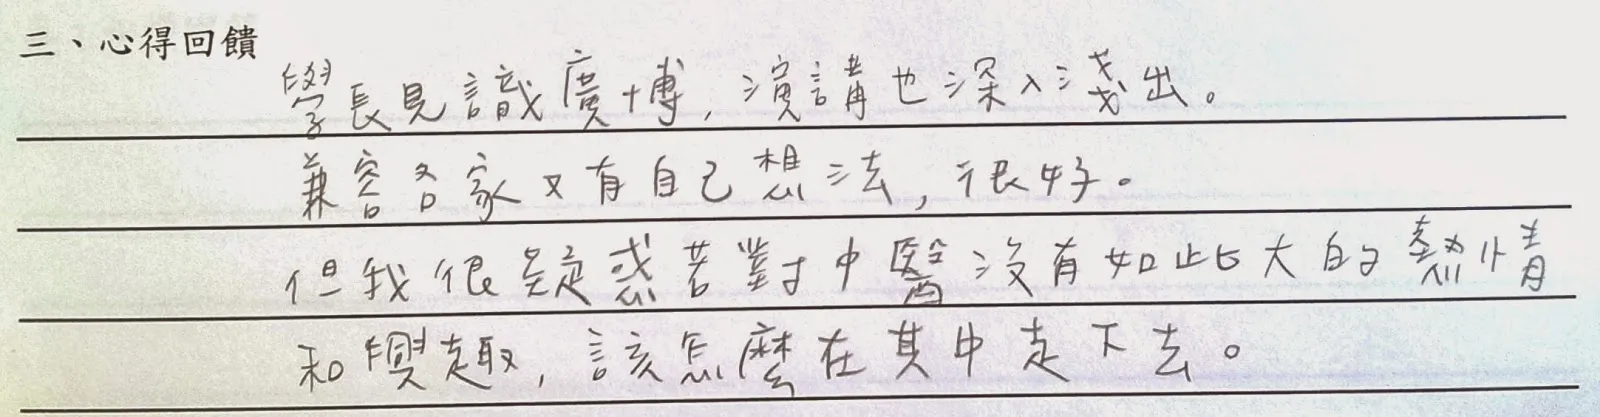 三、心得回饋
學長見識廣博,演講也深入淺出。
兼容各家又有自己想法,很好。
但我很疑惑若對中醫沒有如此大的熱情
和興趣,該怎麼在其中走下去。